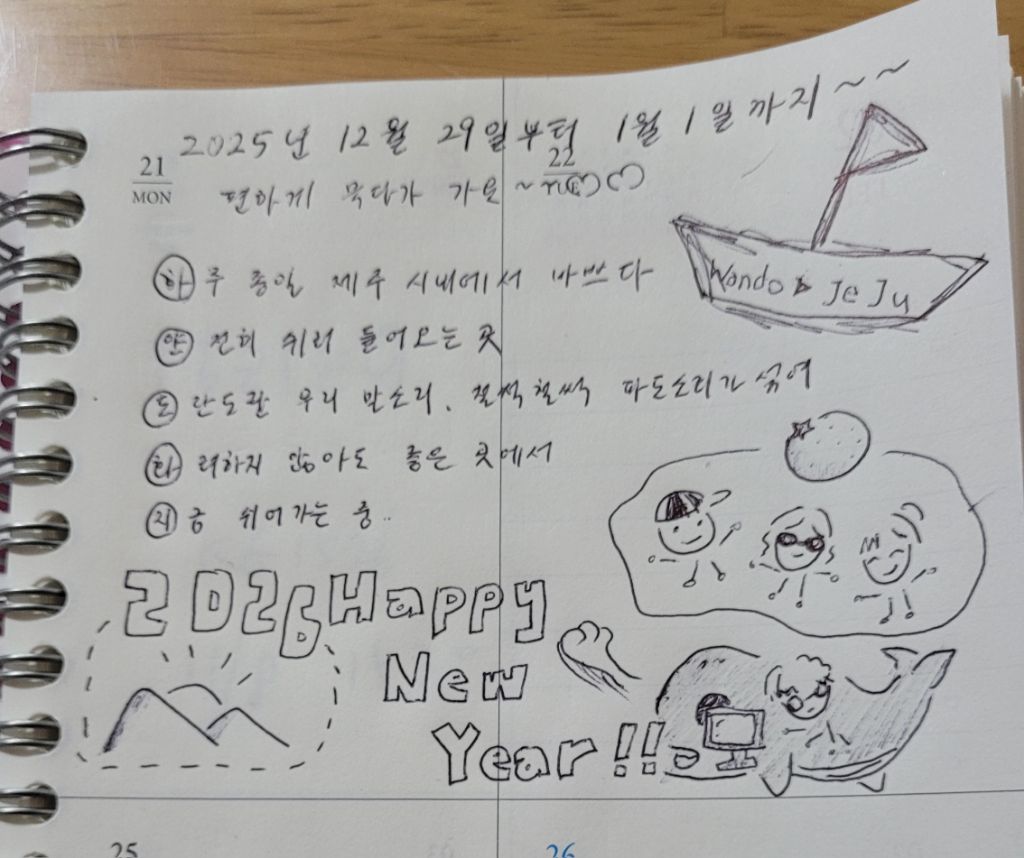 2025년 12월 29일부터 1월 1일까지~~
21
MON
22
편하게 묵다가 가요~
하루 종일 제주 시내에서 바쁘다
완전히 쉬러 들어오는 곳
도란도란 우리 말소리. 철썩철썩 파도소리가 섞여
화려하지 않아도 좋은 곳에서
지금 쉬어가는 중..
Wando JeJu
2026 Happy
New
Year!!
25
26